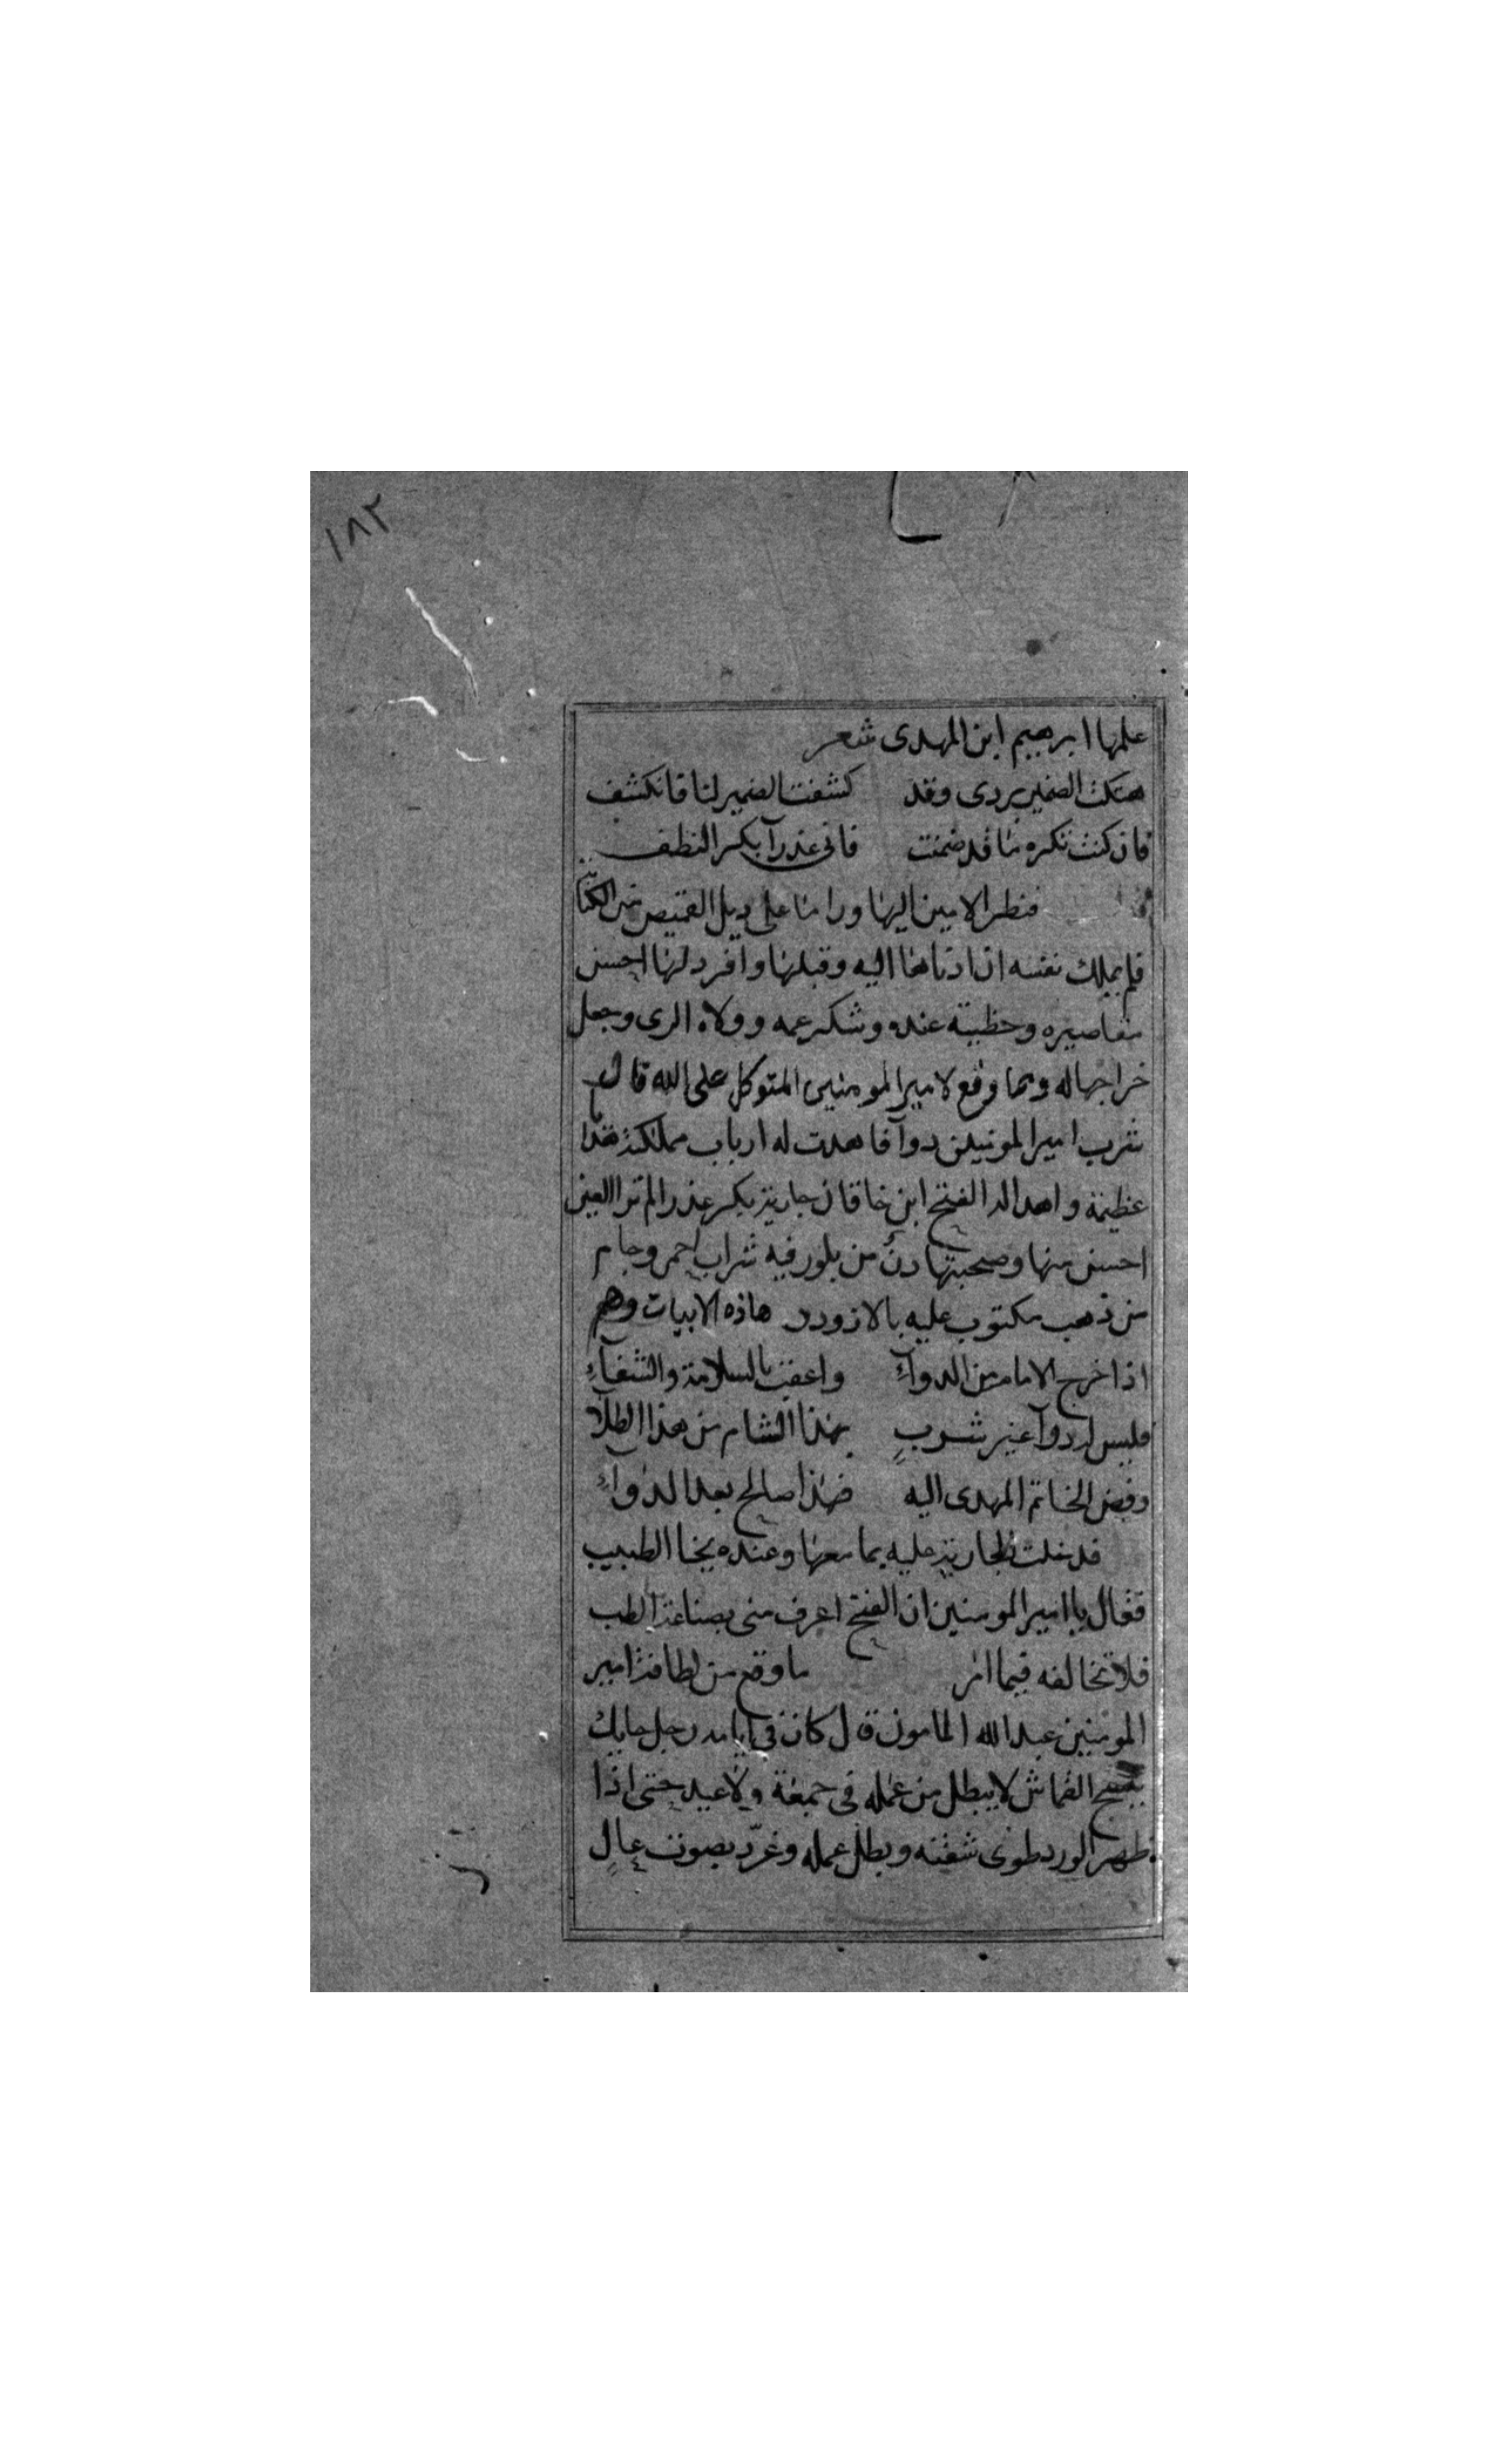 ١٨٢
علمها ابرهيم ابن المهدى شعر
هتكت الضمير بردى وقد كشفت الضمير لنا فانكشف
فان كنت تنكره ما قد ضمنت فانى عذرآ بكر النطف
فنظر الامين اليها وراما على ديل القميص من الكتابة
فلم يملك نفسه ان ادناها اليه وقبلها وافرد لها احسن
مقاصيره وحظيته عنده وشكر عمه وولاه الرى وجعل
خراجها له ومما وقع لامير المومنين المتوكل على الله قال
شرب امير المومنين دوآ فاهدت له ارباب مملكته هدايا
عظيمة واهدا له الفتح ابن خاقان جارية بكر عذرا لم ترا العين
احسن منها وصحبتها دنٌ من بلور فيه شراب احمر وجام
من ذهب مكتوب عليه بالازورد هاذه الابيات وهم
اذا خرج الامام من الدوآءِ واعقب بالسلامة والشفآءِ
فليس له دوآ غير شربٍ بهذا الشام من هذا الطلآ
وفض الخاتم المهدى اليه فهذا صالح بعد الدواءِ
فدخلت الجارية عليه بما معها وعنده يخنا الطبيب
فقال يا امير المومنين ان الفتح اعرف منى بصناعة الطب
فلا تخالفه فيما امر ما وقع من لطافة امير
المومنين عبد الله المامون قال كان فى ايامه رجل حايك
ينسج القماش لا يبطل من عمله فى جمعة ولا عيد حتى اذا
ظهر الورد طوى شقته وبطل عمله وغرّد بصوت عالٍ